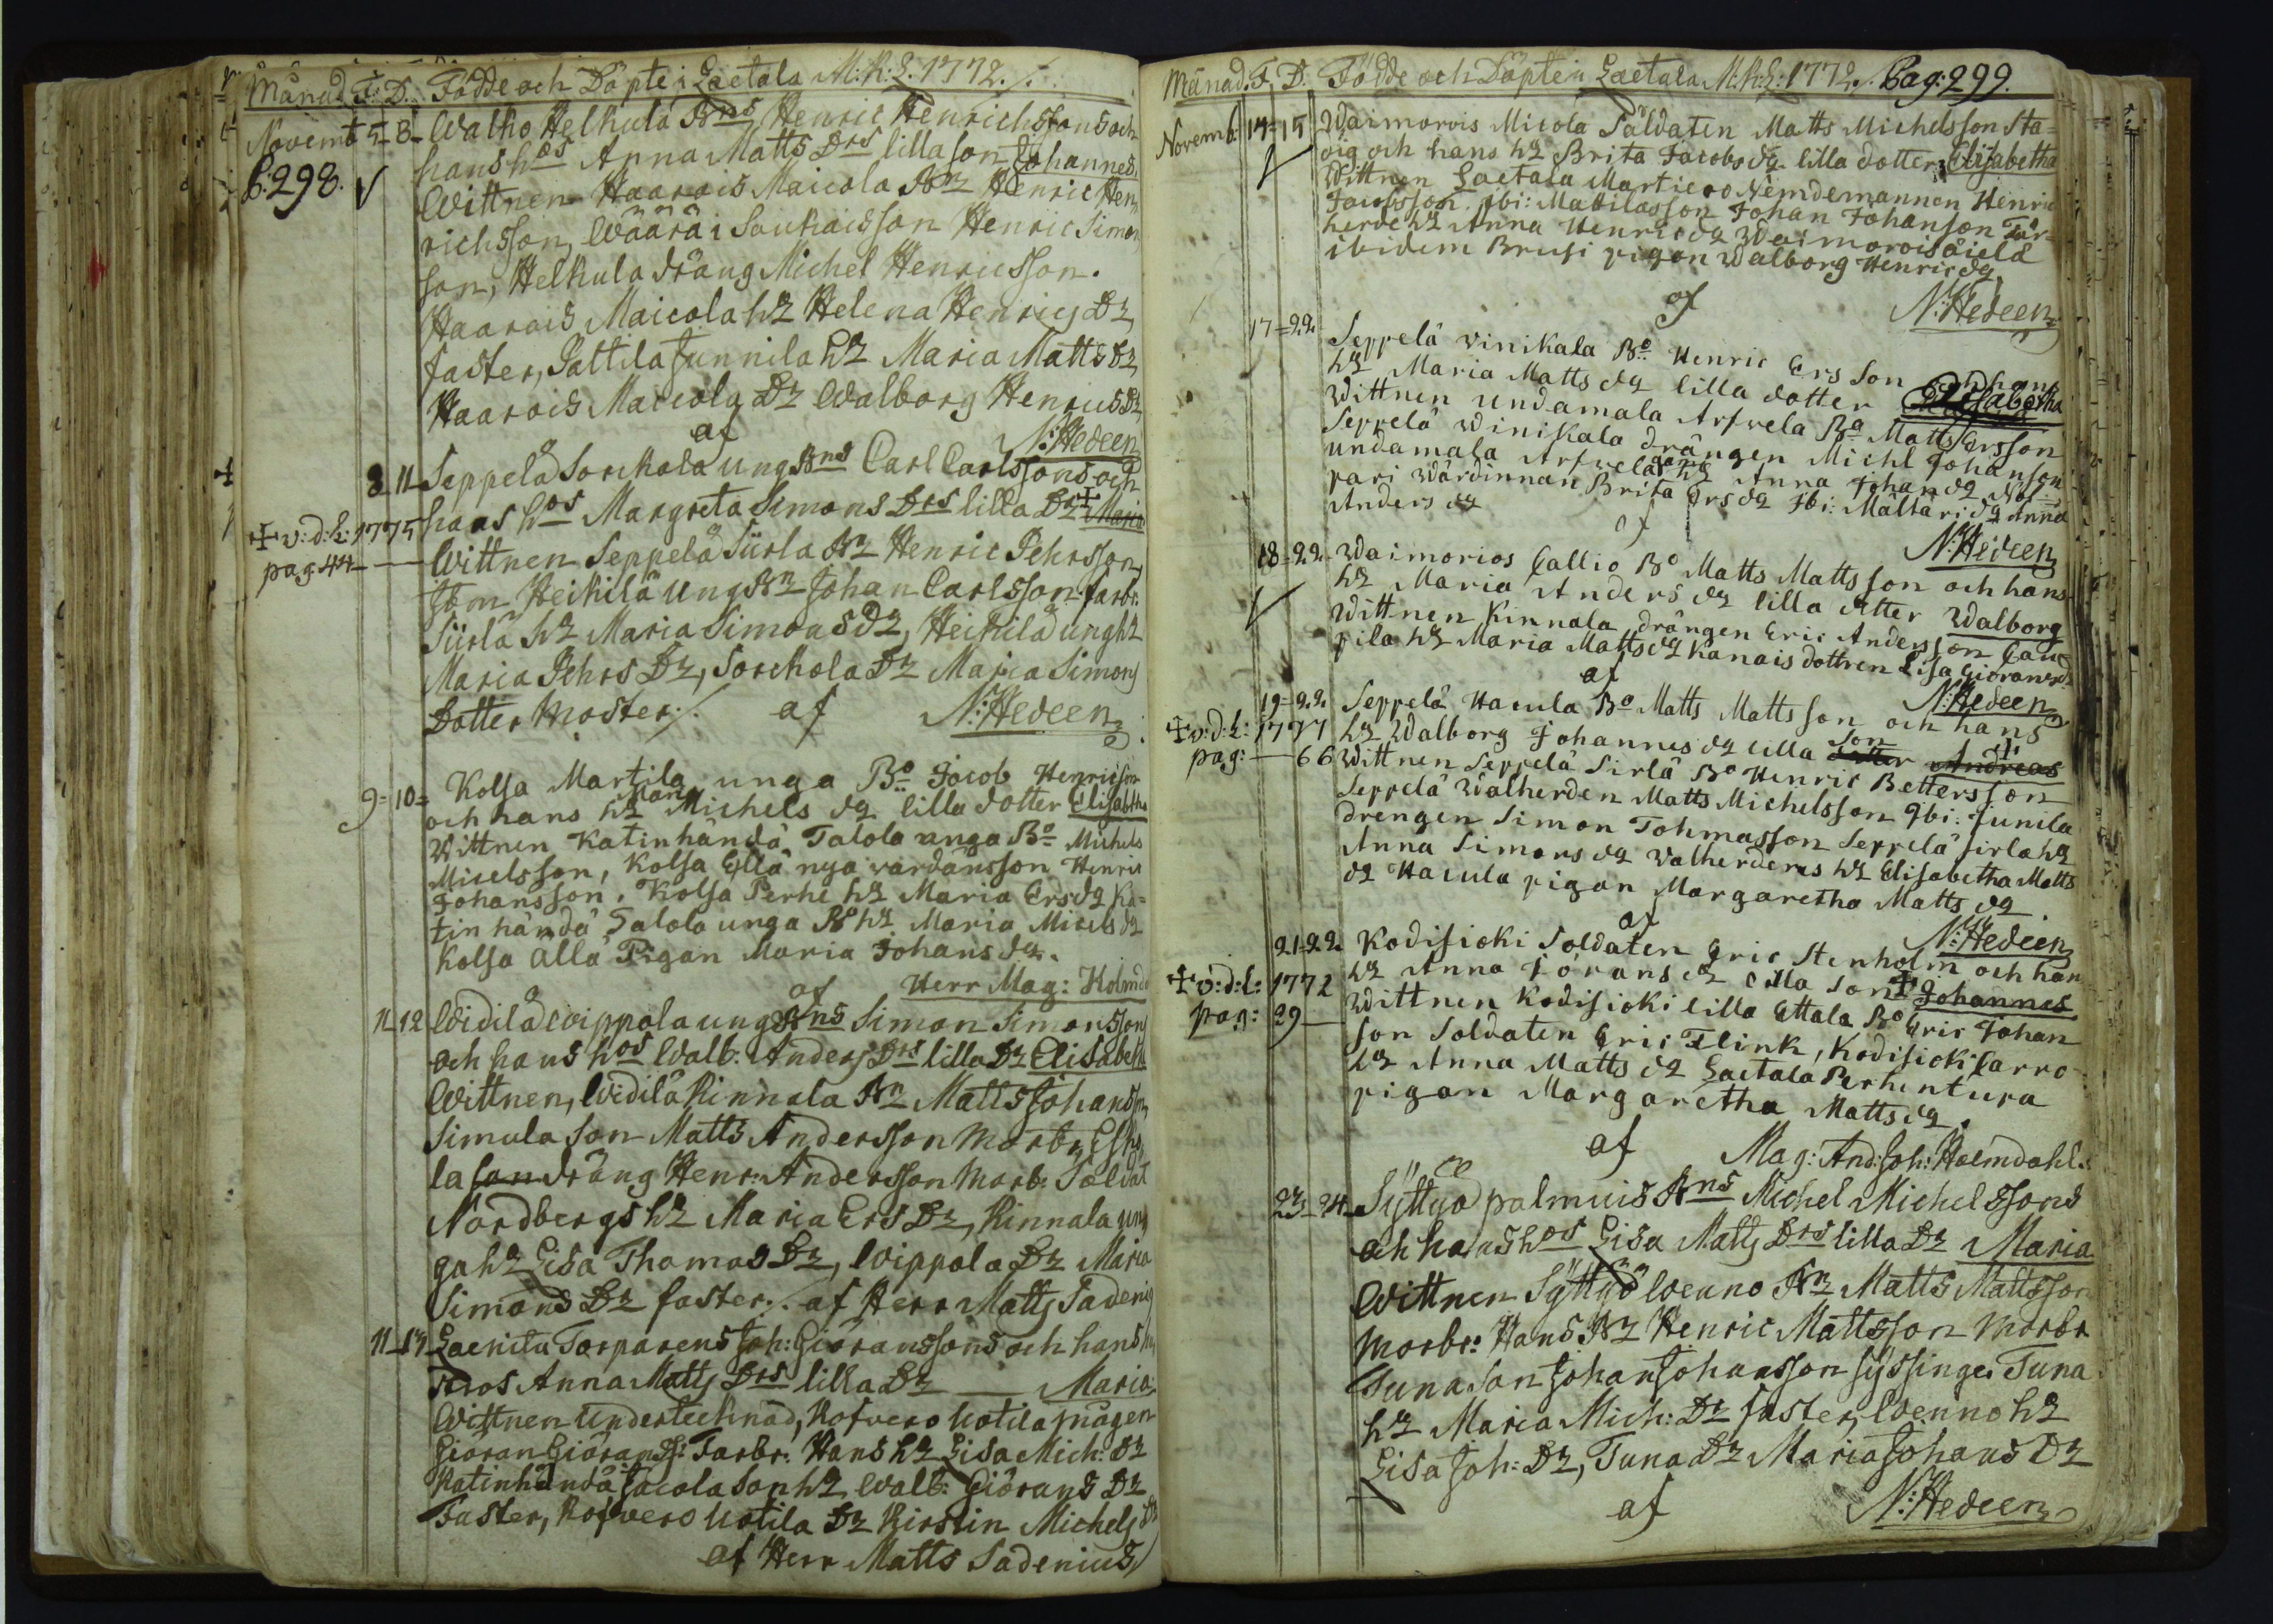 Månad F: D. Födde och Döpte i Laetala M:K:L. 1772./.
Novemb 5-8- Walko Helkula Bns Henric Henrichssons och
P:298. √ hans hos Anna Matts Drs lilla son Johannes,
Wittnen Haarois Maicola Bn Henric Hen
richsson, Wäärä i Soukaisson Henric Simon
son, Helkula dräng Michel Henricsson.
Haarois Maicola h2 Helena Henrics D2
faster, Pattila Junnila h2 Maria Matts D2
Haarois Maicola D2 Walborg Henrics D2
af N: Hedeen
8 11 Seppelä Sorckola ung Bns Carl Carlssons och
✝ v:d:L:1775 hans hos Margreta Simons Drs lilla D2 ✝ Maria
pag 44 — Wittnen Seppelä Siirla Bn Henric Pehrsson,
Ibm Heikilä Ung Bn Johan Carlsson farbr.
Siirlä h2 Maria Simons D2, Heikilä ung h2
Maria Pehrs D2, Sorckola D2 Maria Simons
Dotter Moster./. af N: Hedeen
9=10= Kolsa Martila unga Bo Jacob Henricson
och hans h2 Maria Michels dz lilla dotter Elisabtha
Wittnen Katinhändä Talola unga Bo Michels
Micelsson, Kolsa Ellä nya vardansson Henric
Johansson. Kolsa Perhe h2 Maria Ers dz Ka=
tin händä Talola unga Bo h2 Maria Micels dz
Kolsa älla Pigan Maria Johans dz.
af Herr Mag: Holmd
11-12 Widilä Wippola ung Bns Simon Simonsson
och hans hos Walb: Anders Drs lilla D2 Elisabeth
Wittnen, Widilä Kinnala Bn Matts Johansson,
Simula Son Matts Andersson Morbr,
la son dräng Henr: Andersson Morb: Soldat
Nordbergs h2 Maria Ers D2, Kinnala un
ga h2 Lisa Thomas D2, Wippola D2 Maria
Simons D2 faster./. af Herr Matts Sadenius
11-13 Laenitu Torparens Joh: Giöranssons och hans
hos Anna Matts Drs lilla D2 — Maria.
Wittnen Undertecknad, Kofvero Uotila mågen
Giöran Giörans: Farbr. Hans h2 Lisa Mich: D2
Katinhändä Jacola Son h2 Walb: Giörans D2
Faster, Kofvero Uotila D2 Kirstin Michels D2
af Herr Matts Sadenius
Månad. F, D. Födde och Döpte i Laetala M:K:L: 1772./. Pag: 299.
Novemb. 14=15 Waimarois Micola Soldaten Matts Michelsson Sta=
√ dig och hans h2 Brita Jacobs dz. lilla dotter Elisabetha
Wittnen Laetala Martiero Nemdemannen Henric
Jacobsson ibi: Matilasson Johan Johanson Får=
herde h2 Anna Henrics dz Waimarois
ibidem Brusi pigan Walborg Henrics dz.
af N: Hedeen
17=22 Seppelä Winikala Bo Henric Ers son och hans
h2 Maria Matts dz lilla dotter Elisabetha
Wittnen undamala Arfvela Bo Matts Ersson
Seppelä Winikala drängen Michl Johanson
undamala Arfvela h2 Anna Johan dz Nol=
pari Wärdinnan Brita Ers dz Ibi: Maltari dz Anna
Anders dz
af N: Hedeen
18=22 Waimorios Callio Bo Matts Matts son och hans
√ h2 Maria Anders dz lilla dtter Walborg
Wittnen Kinnala drängen Eric Anderson Cau
pila h2 Maria Matts dz Kanais dottren Lisa Giörans dz
af N: Hedeen
19=22 Seppelä Hacula Bo Matts Matts son och hans
✝ v:d:L: 1777 h2 Walborg Johannes dz lilla son dotter Andreas
pag: — 66 Wittnen Seppelä Sirlä Bo Henric Bettersson
Seppelä Walherden Matts Michelsson Ibi: Junila
drengen Simon Tohmasson Seppelä Sirla h2
Anna Simons dz walherdens h2 Elisabetha Matts
dz Hacula pigan Margaretha Matts dz.
af N: Hedeen
21=22 Kodisioki Soldaten Eric Stenholm och han
✝ v:d:L: 1772 h2 Anna Jörans dz lilla son ✝ Johannes
pag: 29 — Wittnen Kodisioki lilla Ettala Bo Eric Johan
son Soldaten Eric Flink, Kodisioki Carro
h2 Anna Matts dz Laetala Perhintupa
pigan Margaretha Matts dz.
af Mag: And: Joh: Holmdahl.
23-24 Syttyö palmuis Bns Michel Michelssons
och hans hos Lisa Matts Drs lilla D2 Maria
Wittnen Syttyö Wenno Bn Matts Mattsson
Morbr: Hans Bn Henric Mattsson Morbr
Tuna Son Johan Johansson syssinge, Tuna
h2 Maria Mich: D2 faster, Wenno h2
Lisa Joh: D2, Tuna D2 Maria Johans D2
af N: Hedeen